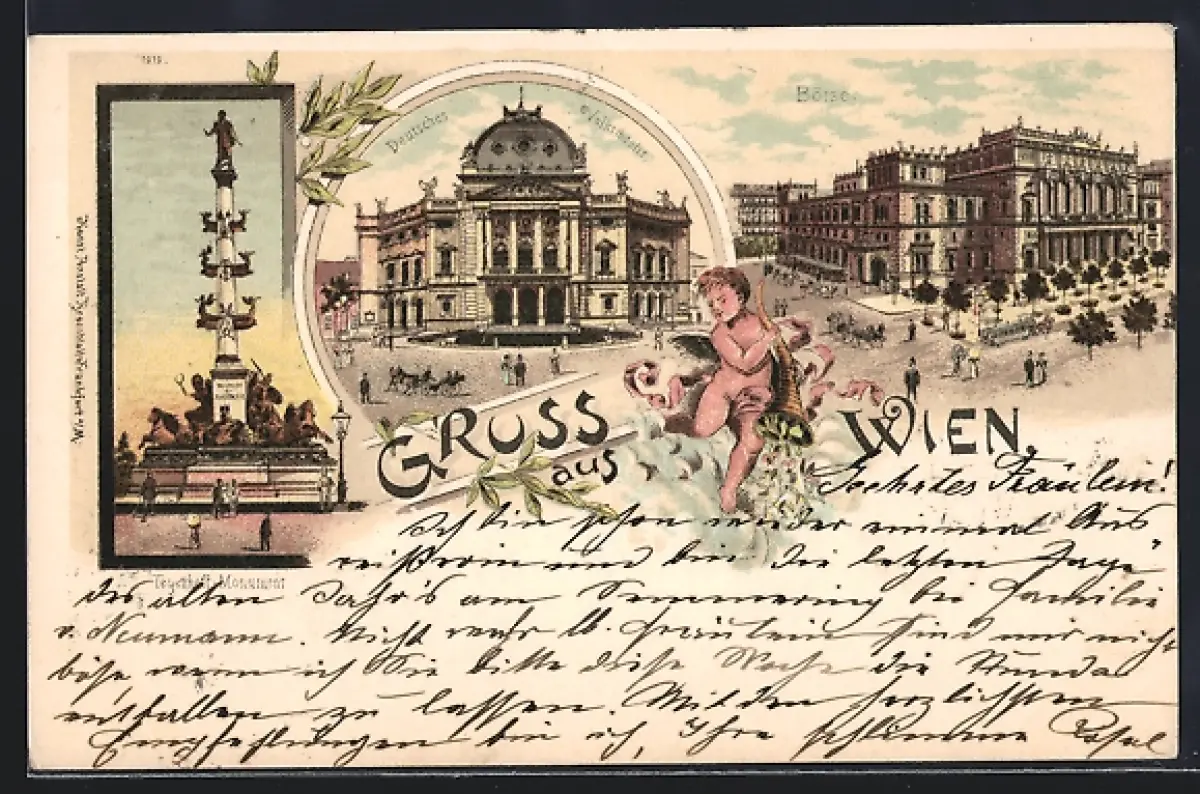 1919.
Deutsches Volkstheater
Börse.
GRUSS
aus
WIEN.
Tegetthoff-Monument
Geehrtes Fräulein!
Ich bin schon wieder einmal Aus
reißerin und bin die letzten Tage
des alten Jahr's am Semmering bei Familie
v. Neumann. Nicht wahr lb. Fräulein sind mir nicht
böse wenn ich Sie bitte diese Woche die Stunde
entfallen zu lassen. Mit den herzlichsten
Empfehlungen bin ich, Ihre schlimme